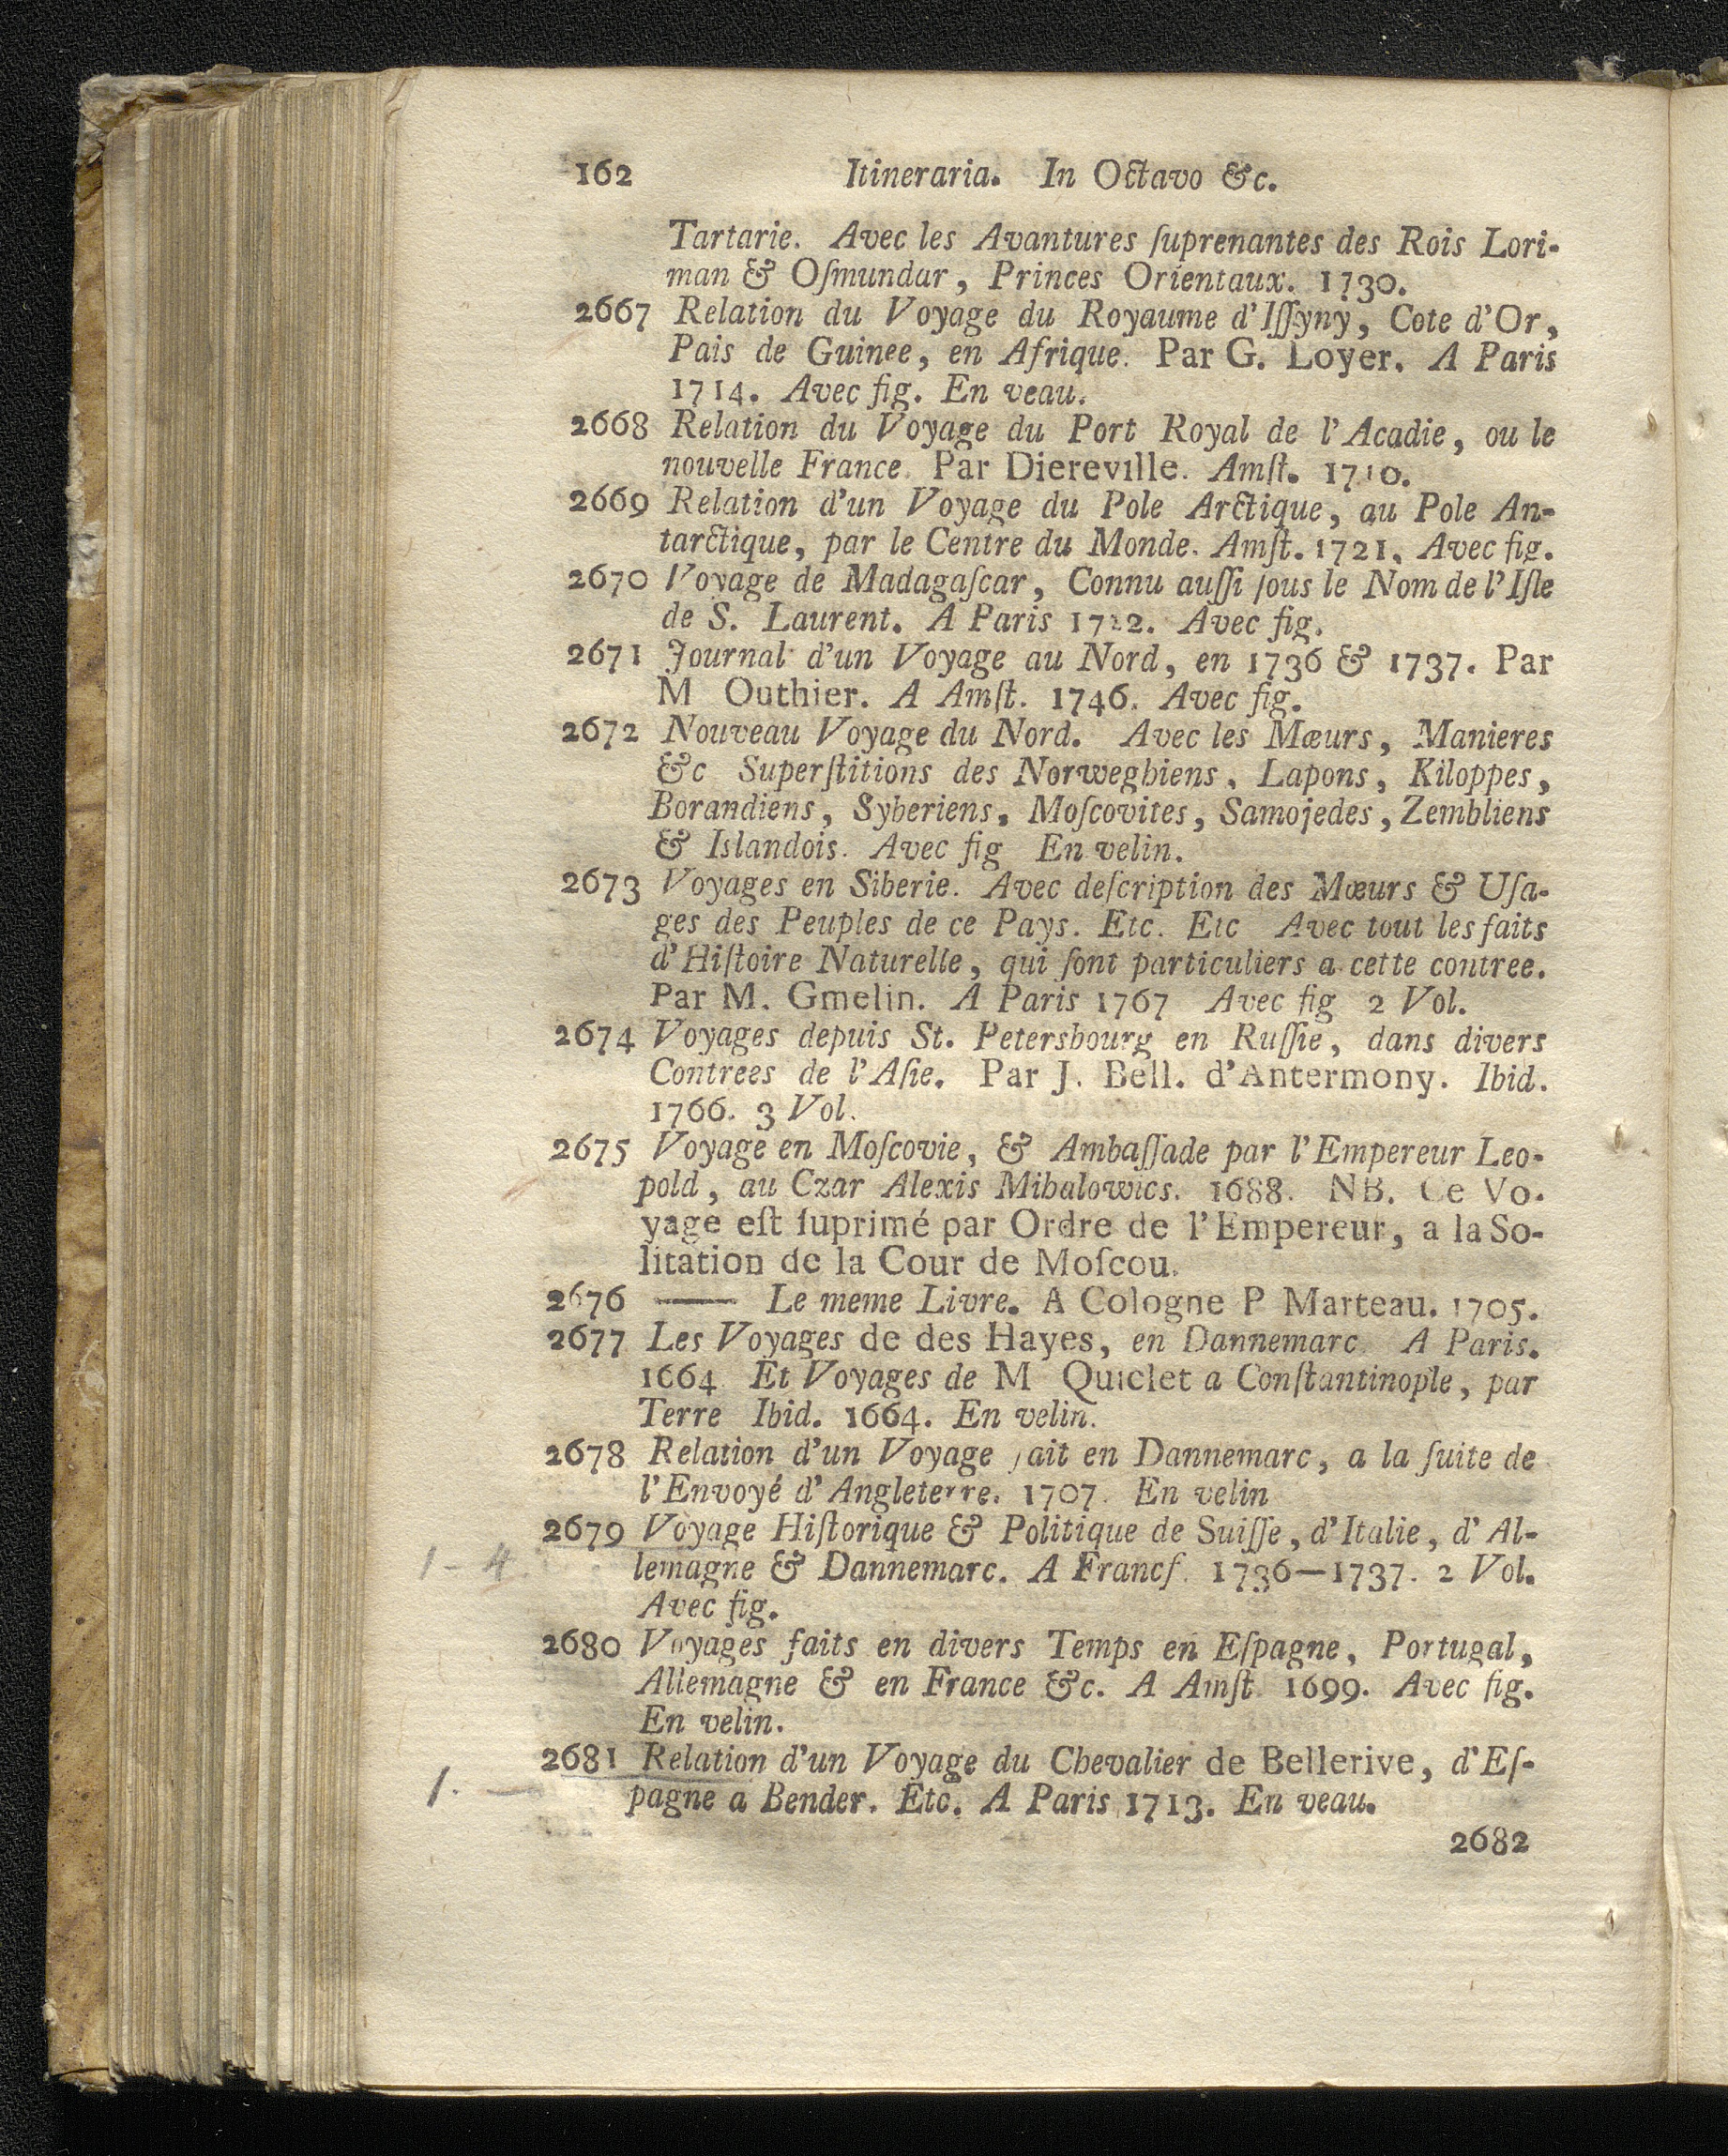 162 Itineraria. In Octavo &c.
Tartarie. Avec les Avantures ſuprenantes des Rois Lori-
man & Oſmundar, Princes Orientaux. 1730.
2667 Relation du Voyage du Royaume d'Iſſyny, Cote d'Or,
Pais de Guinee, en Afrique. Par G. Loyer. A Paris
1714. Avec fig. En veau.
2668 Relation du Voyage du Port Royal de l'Acadie, ou le
nouvelle France. Par Diereville. Amſt. 1710.
2669 Relation d'un Voyage du Pole Arctique, au Pole An-
tarctique, par le Centre du Monde. Amſt. 1721. Avec fig.
2670 Voyage de Madagaſcar, Connu auſſi ſous le Nom de l'Iſle
de S. Laurent. A Paris 1722. Avec fig.
2671 Journal d'un Voyage au Nord, en 1736 & 1737. Par
M Outhier. A Amſt. 1746. Avec fig.
2672 Nouveau Voyage du Nord. Avec les Mœurs, Manieres
&c Superſtitions des Norweghiens, Lapons, Kiloppes,
Borandiens, Syberiens, Moſcovites, Samojedes, Zembliens
& Islandois. Avec fig En velin.
2673 Voyages en Siberie. Avec deſcription des Mœurs & Uſa-
ges des Peuples de ce Pays. Etc. Etc Avec tout les faits
d'Hiſtoire Naturelle, qui ſont particuliers a cette contree.
Par M. Gmelin. A Paris 1767 Avec fig 2 Vol.
2674 Voyages depuis St. Petersbourg en Ruſſie, dans divers
Contrees de l'Aſie. Par J. Bell. d'Antermony. Ibid.
1766. 3 Vol.
2675 Voyage en Moſcovie, & Ambaſſade par l'Empereur Leo-
pold, au Czar Alexis Mihalowics. 1688. NB. Ce Vo-
yage eſt ſuprimé par Ordre de l'Empereur, a la So-
litation de la Cour de Moſcou.
2676 —— Le meme Livre. A Cologne P Marteau. 1705.
2677 Les Voyages de des Hayes, en Dannemarc. A Paris.
1664 Et Voyages de M Quiclet a Conſtantinople, par
Terre Ibid. 1664. En velin.
2678 Relation d'un Voyage fait en Dannemarc, a la ſuite de
l'Envoyé d'Angleterre. 1707. En velin
2679 Voyage Hiſtorique & Politique de Suiſſe, d'Italie, d'Al-
1-4. lemagne & Dannemarc. A Francf. 1736—1737. 2 Vol.
Avec fig.
2680 Voyages faits en divers Temps en Eſpagne, Portugal,
Allemagne & en France &c. A Amſt 1699. Avec fig.
En velin.
2681 Relation d'un Voyage du Chevalier de Bellerive, d'Eſ-
1. — pagne a Bender. Etc. A Paris 1713. En veau.
2682